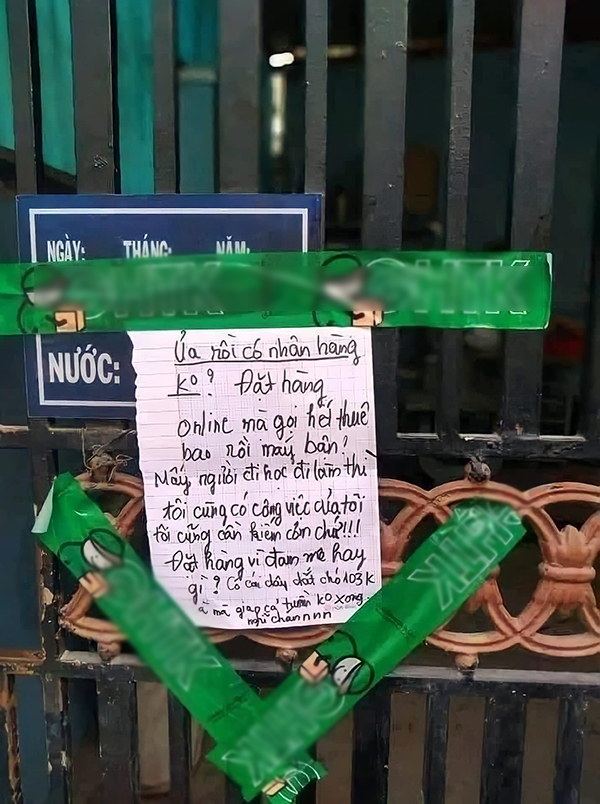 NGÀY: THÁNG: NĂM:
NƯỚC:
Ủa rồi có nhân hàng
ko? Đặt hàng
online mà gọi hết thuê
bao rồi máy bận!
Mấy người đi học đi làm thì
tôi cũng có công việc của tôi
tôi cũng cần kiếm cơm chứ!!!
Đặt hàng vì đam mê hay
gì? Có cái dây dắt chó 103K
à mà giao cả tuần ko xong.
nghĩ chánnnn